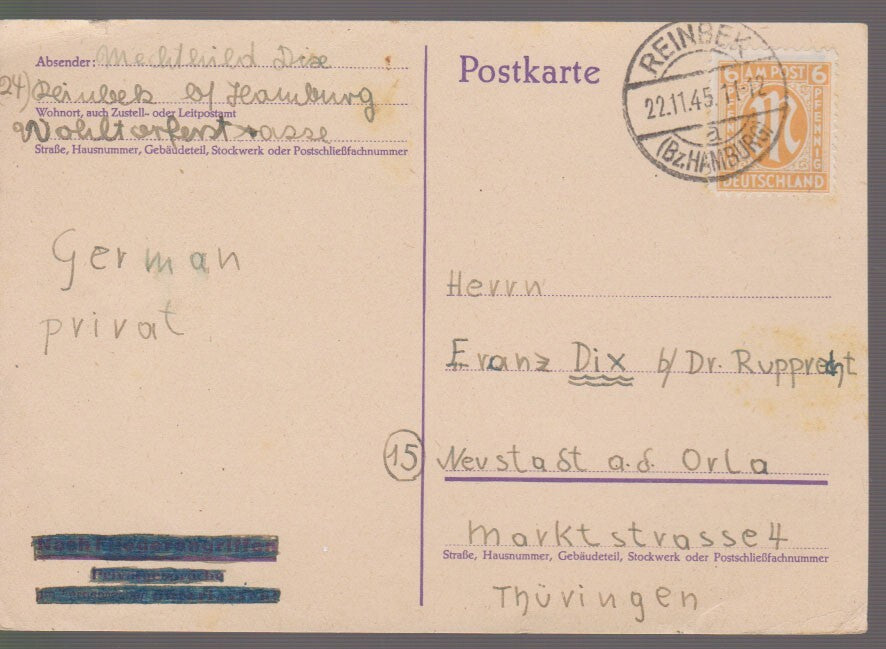 Absender: Mechthild Dix
(24) Reinbek b/ Hamburg
Wohnort, auch Zustell- oder Leitpostamt
Wohltorferstrasse
Straße, Hausnummer, Gebäudeteil, Stockwerk oder Postschließfachnummer
German
privat
Postkarte
REINBEK
22.11.45.11-12
a
(Bz.HAMBURG)
6 AM POST 6
PFENNIG
M
DEUTSCHLAND
Herrn
Franz Dix b/ Dr. Rupprecht
15 Neustadt a.d. Orla
Marktstrasse 4
Straße, Hausnummer, Gebäudeteil, Stockwerk oder Postschließfachnummer
Thüringen